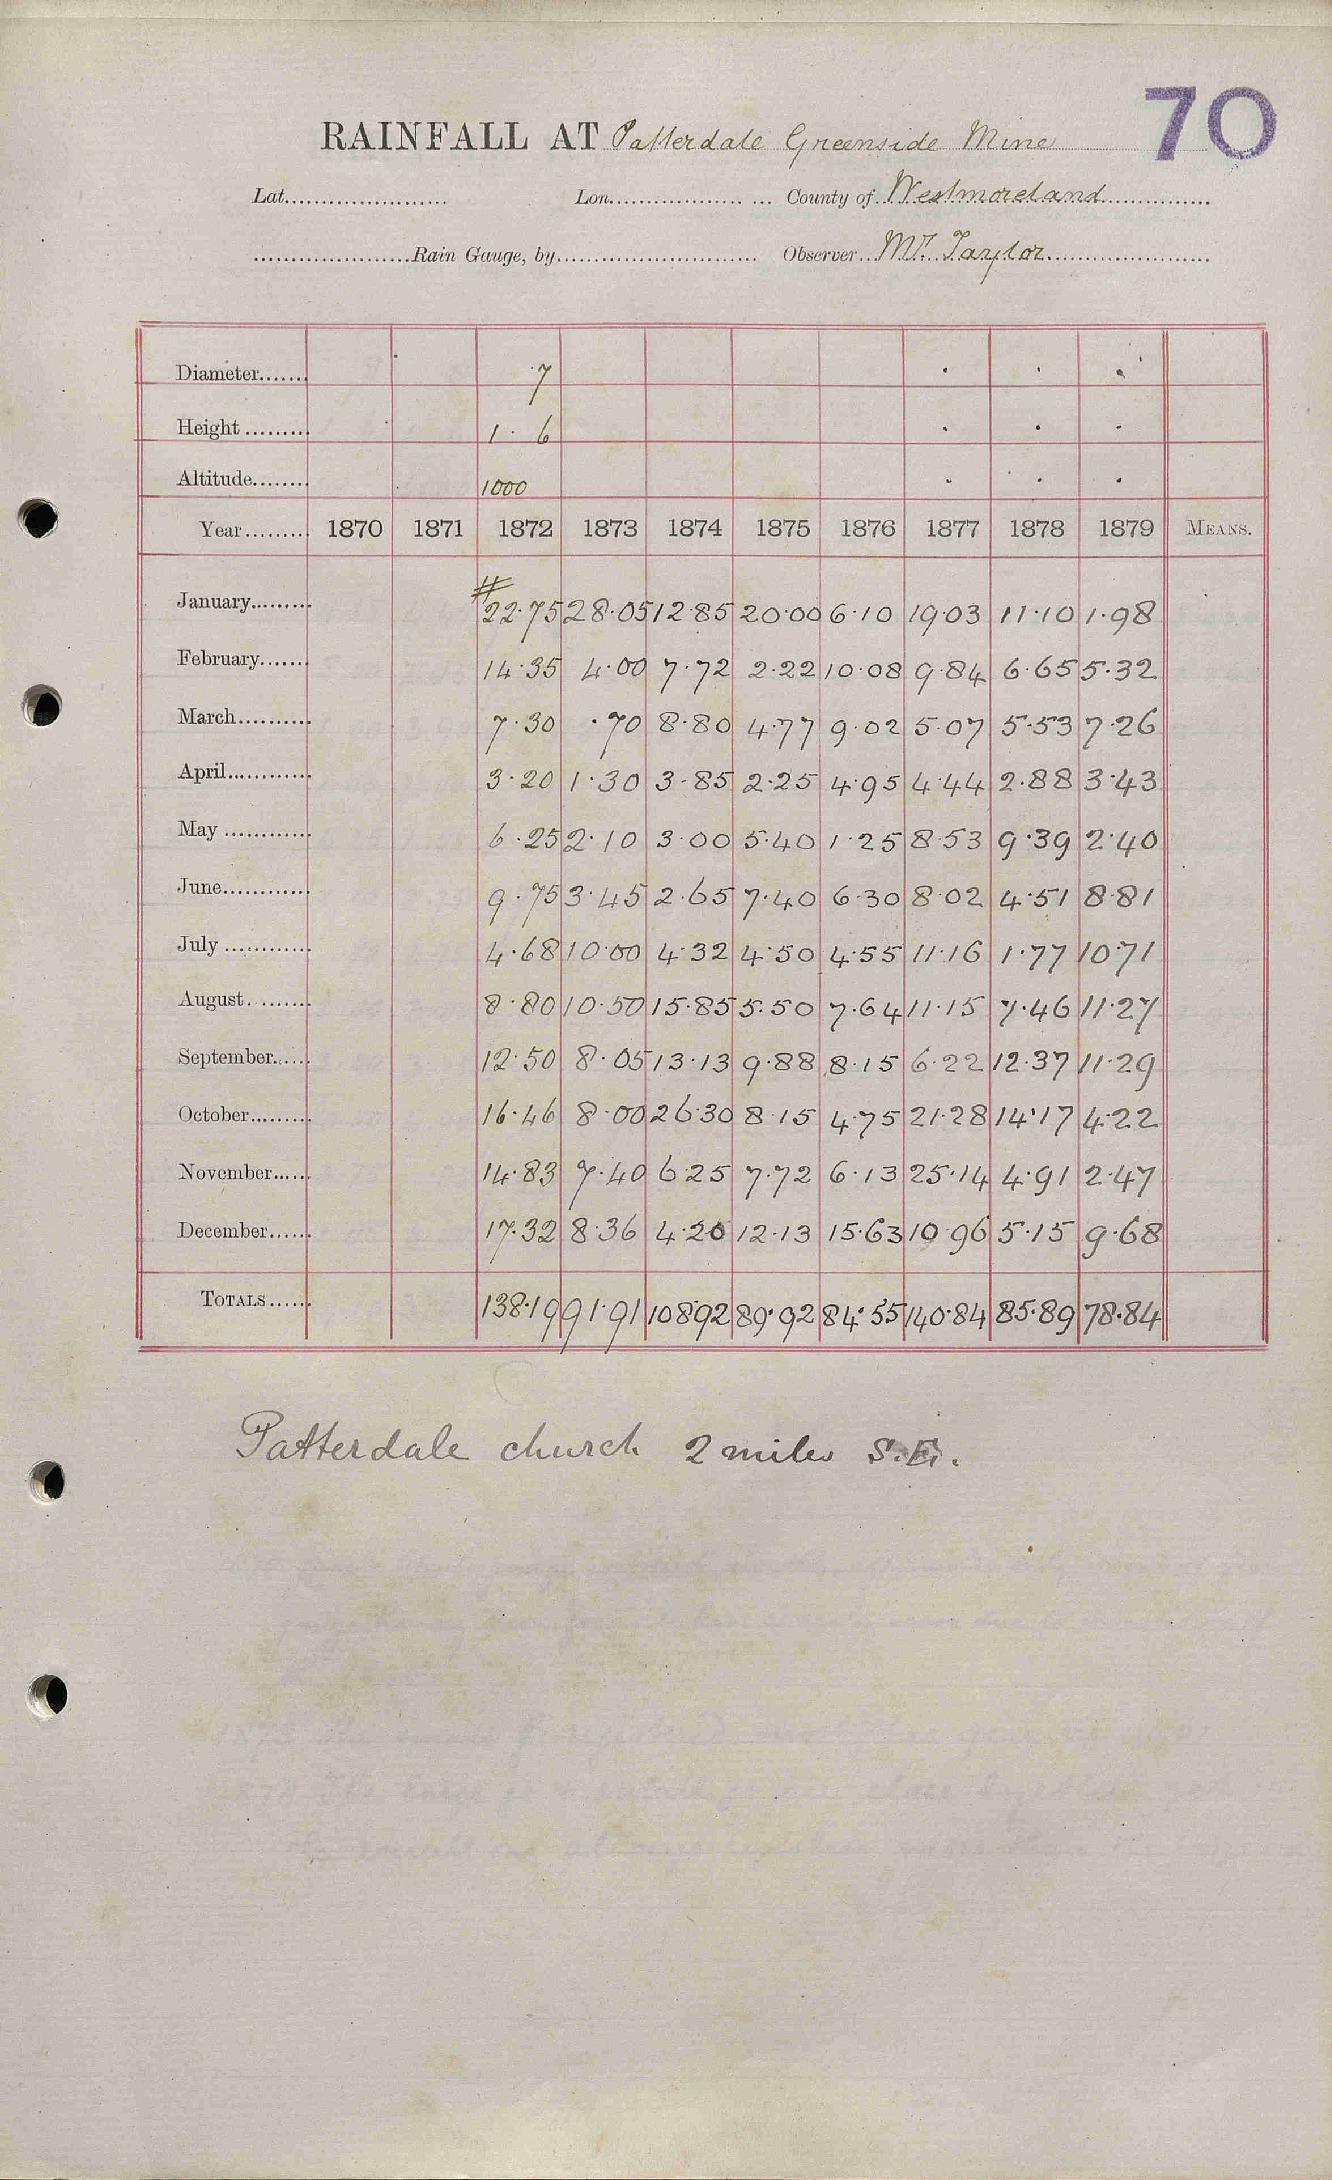 70
RAINFALL AT Patterdale Greenside Mine
Lat. Lon. County of Westmoreland
Rain Gauge, by Observer Mr. Taylor
Diameter 7
Height 1 · 6
Altitude 1000
Year 1870 1871 1872 1873 1874 1875 1876 1877 1878 1879 MEANS.
#
January 22·75 28·05 12·85 20·00 6·10 19·03 11·10 1·98
February 14·35 4·00 7·72 2·22 10·08 9·84 6·65 5·32
March 7·30 ·70 8·80 4·77 9·02 5·07 5·53 7·26
April 3·20 1·30 3·85 2·25 4·95 4·44 2·88 3·43
May 6·25 2·10 3·00 5·40 1·25 8·53 9·39 2·40
June 9·75 3·45 2·65 7·40 6·30 8·02 4·51 8·81
July 4·68 10·00 4·32 4·50 4·55 11·16 1·77 10·71
August 8·80 10·50 15·85 5·50 7·64 11·15 7·46 11·27
September 12·50 8·05 13·13 9·88 8·15 6·22 12·37 11·29
October 16·46 8·00 26·30 8·15 4·75 21·28 14·17 4·22
November 14·83 7·40 6·25 7·72 6·13 25·14 4·91 2·47
December 17·32 8·36 4·20 12·13 15·63 10·96 5·15 9·68
TOTALS 138·19 91·91 108·92 89·92 84·55 140·84 85·89 78·84
Patterdale church 2 miles S.E.